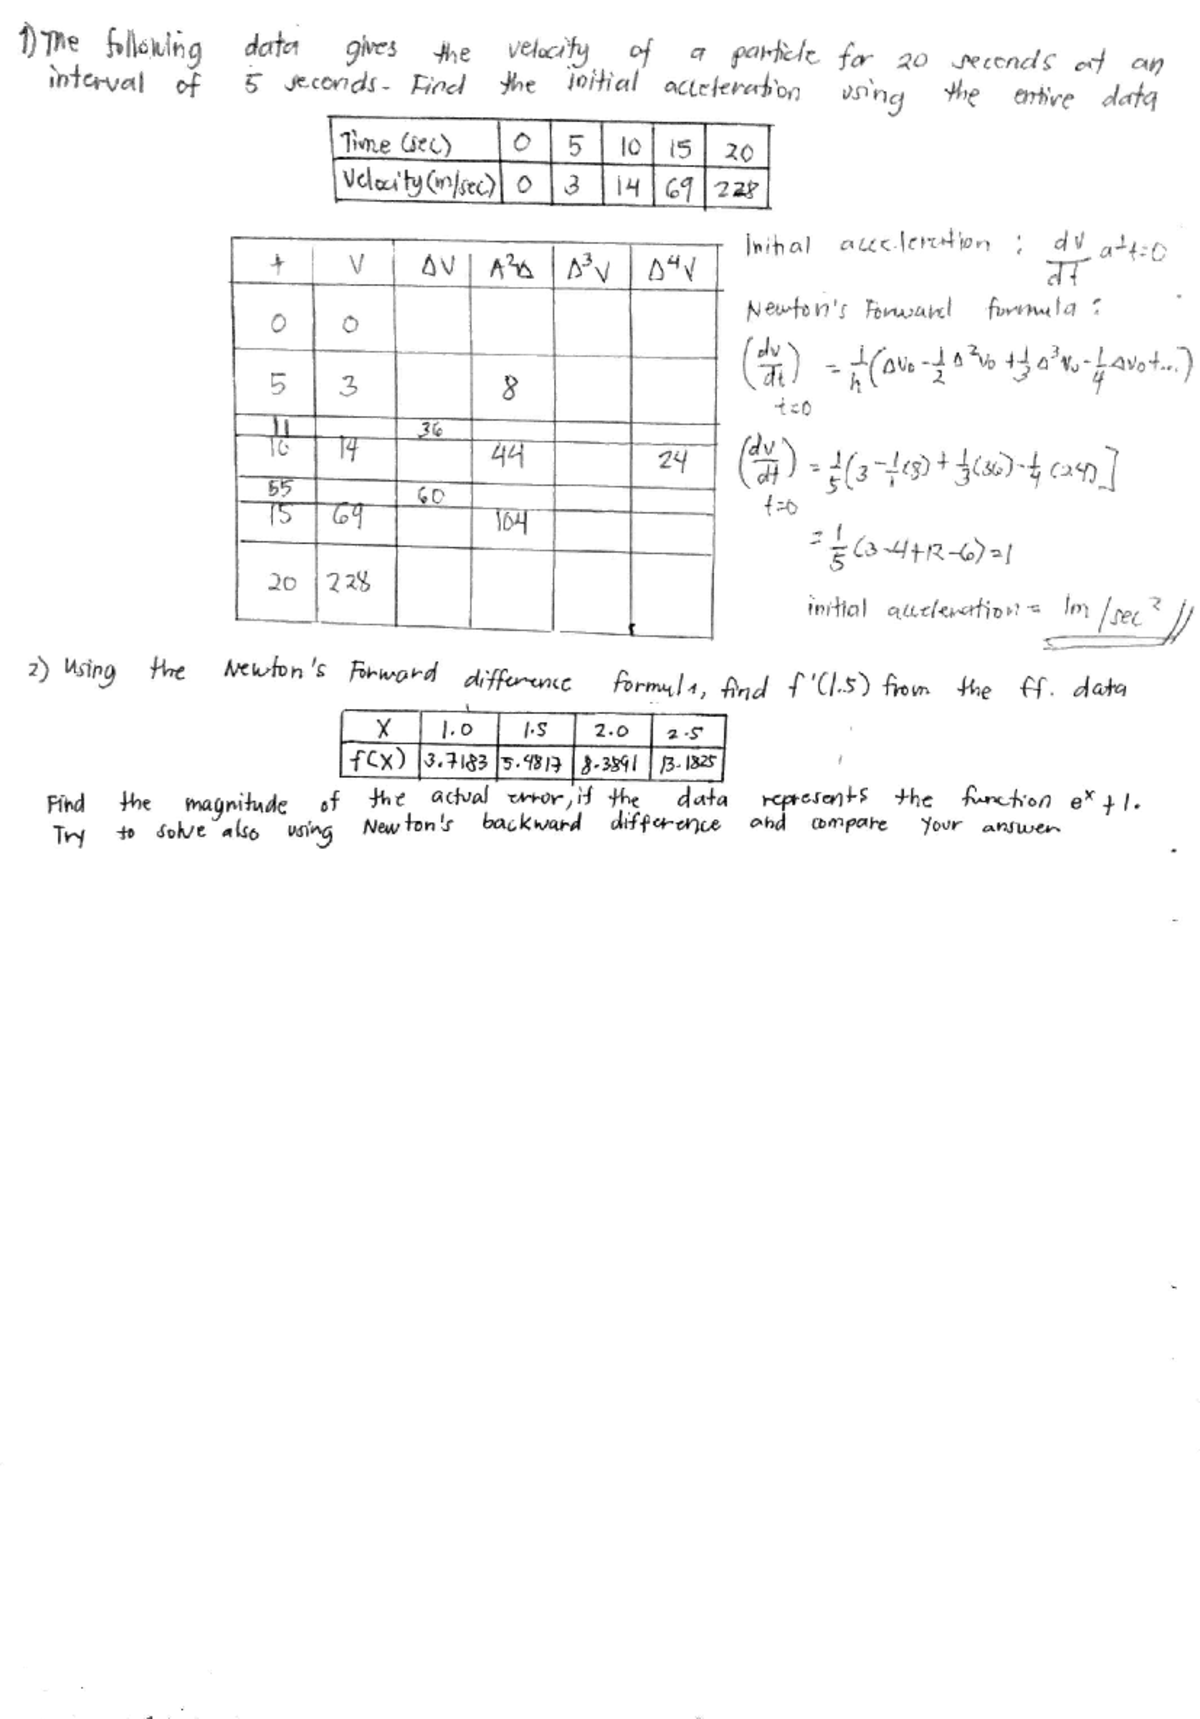 1) The following data gives the velocity of a particle for 20 seconds at an
interval of 5 seconds. Find the initial acceleration using the entire data
Time (sec) 0 5 10 15 20
Velocity (m/sec) 0 3 14 69 228
t V ΔV Δ²Δ Δ³V Δ⁴V
0 0
5 3 8
11 36
10 14 44 24
55 60
15 69 104
20 228
Initial acceleration : dv/dt at t=0
Newton's Forward formula :
(dv/dt) t=0 = 1/h (ΔV₀ - 1/2 Δ²V₀ + 1/3 Δ³V₀ - 1/4 ΔV₀ + ...)
(dv/dt) t=0 = 1/5 (3 - 1/1 (8) + 1/3 (36) - 1/4 (24)]
= 1/5 (3-4+12-6) = 1
initial acceleration = 1m/sec² //
2) Using the Newton's Forward difference formula, find f'(1.5) from the ff. data
X 1.0 1.5 2.0 2.5
f(x) 3.7183 5.4817 8.3891 13.1825
Find the magnitude of the actual error, if the data represents the function eˣ + 1.
Try to solve also using Newton's backward difference and compare your answer